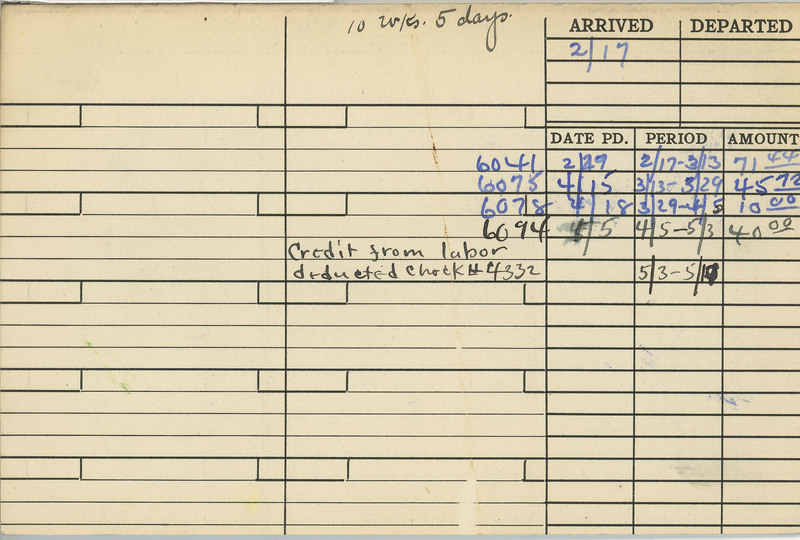 10 wks. 5 days.
ARRIVED DEPARTED
2/17
DATE PD. PERIOD AMOUNT
6041 2/29 2/17-3/13 71 44
6075 4/15 3/13-3/29 45 72
6078 4/18 3/29-4/5 10 00
6094 4/5 4/5-5/3 40 00
Credit from labor
deducted Check # 4332 5/3-5/